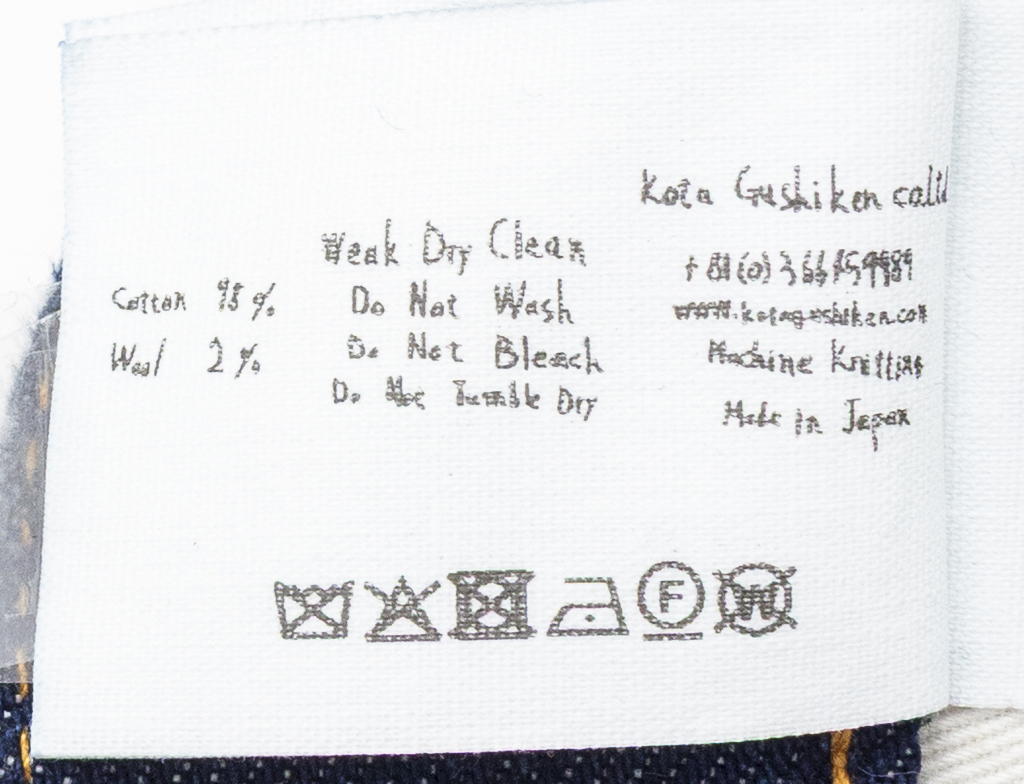 Cotton 98%
Wool 2%
Weak Dry Clean
Do Not Wash
Do Not Bleach
Do Not Tumble Dry
Kota Gushiken
www.kotagushiken.com
Machine Knitting
Made in Japan
F
W